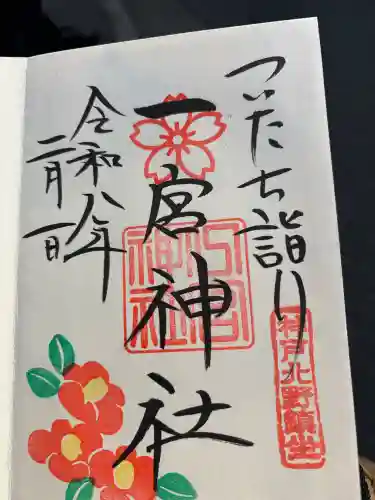 ついたち詣り
神戸北野鎮座
一宮神社
一宮神社
令和八年
二月一日